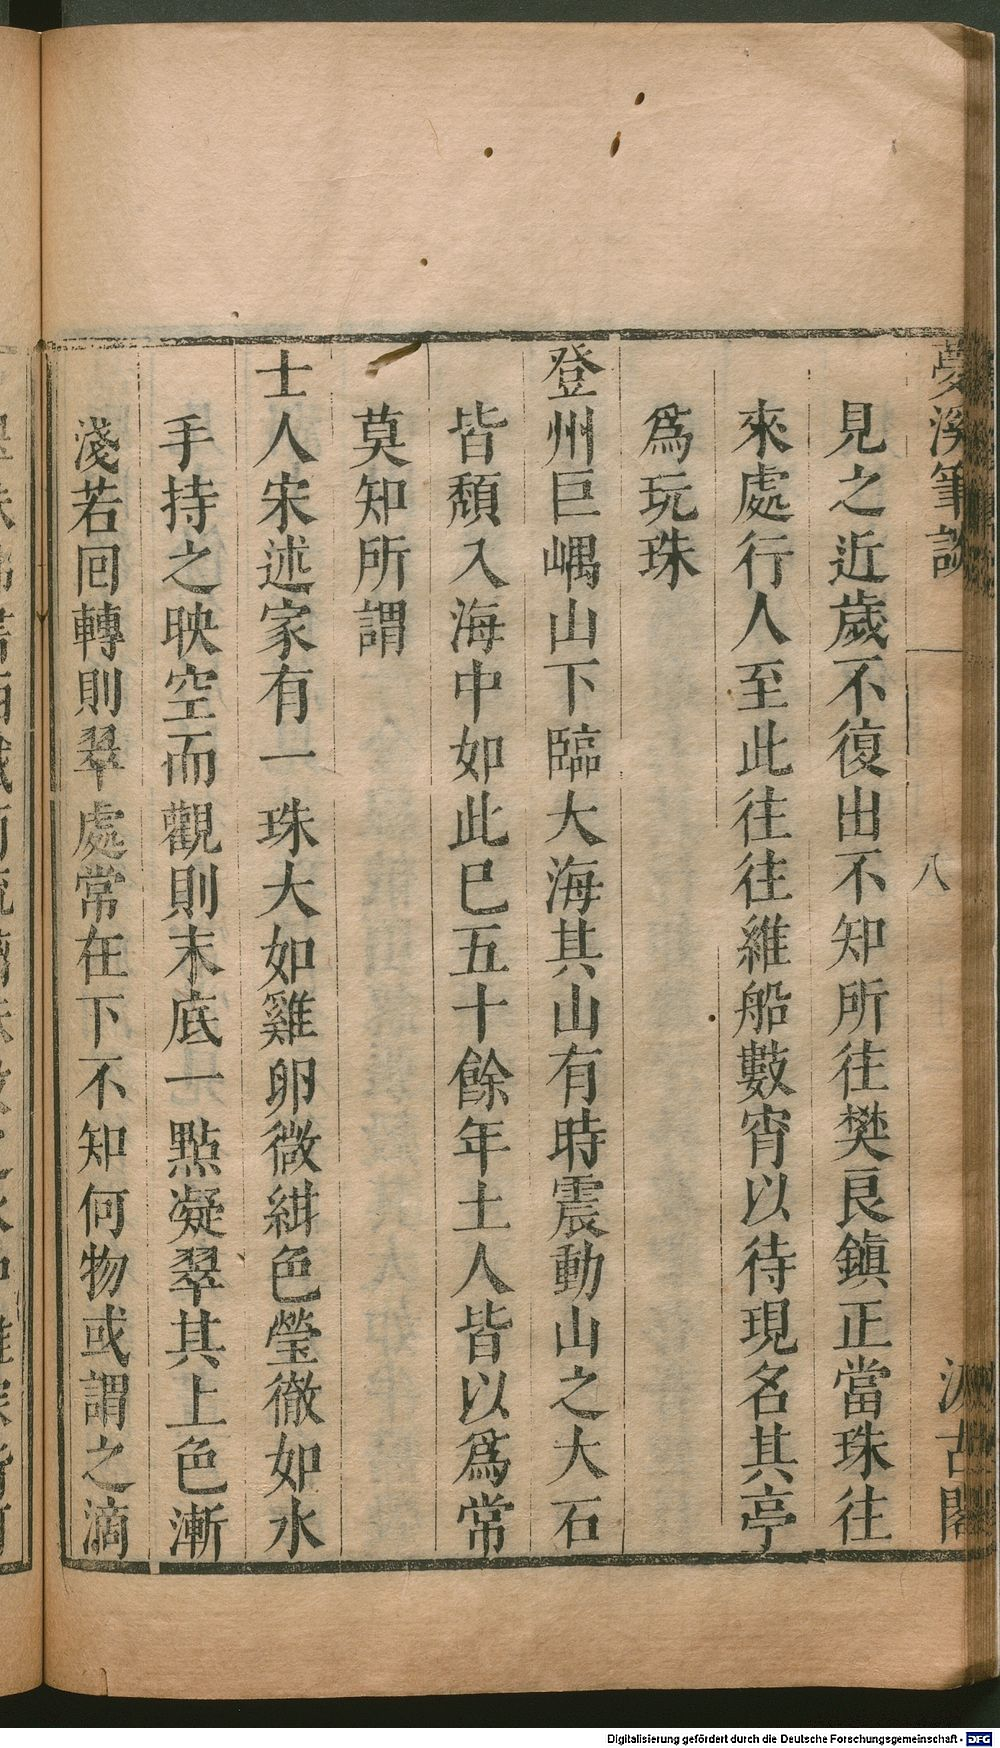 夢溪筆談 八 汲古閣
見之近歲不復出不知所往樊良鎮正當珠往
來處行人至此往往維船數宵以待現名其亭
爲玩珠
登州巨嵎山下臨大海其山有時震動山之大石
皆頹入海中如此巳五十餘年土人皆以爲常
莫知所謂
士人宋述家有一珠大如雞卵微紺色瑩徹如水
手持之映空而觀則末底一點凝翠其上色漸
淺若回轉則翠處常在下不知何物或謂之滴
Digitalisierung gefördert durch die Deutsche Forschungsgemeinschaft - DFG